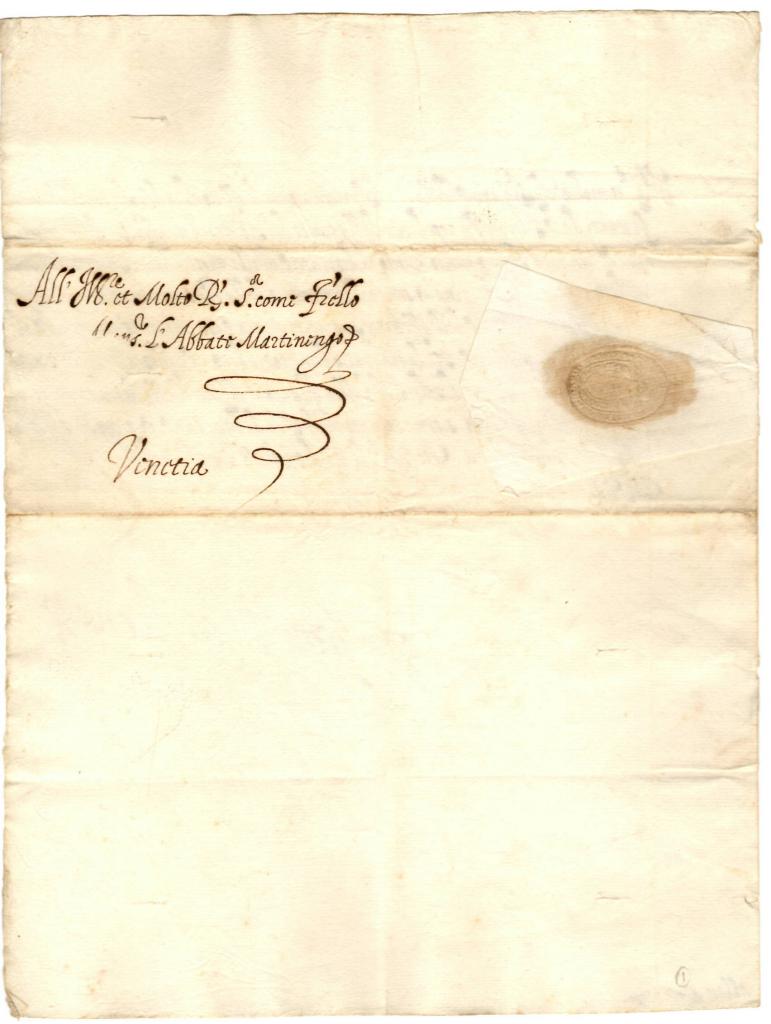 All' Ill.re et Molto R.do S.r come F'rello
Mons.r L'Abbate Martinengo
Venetia
1